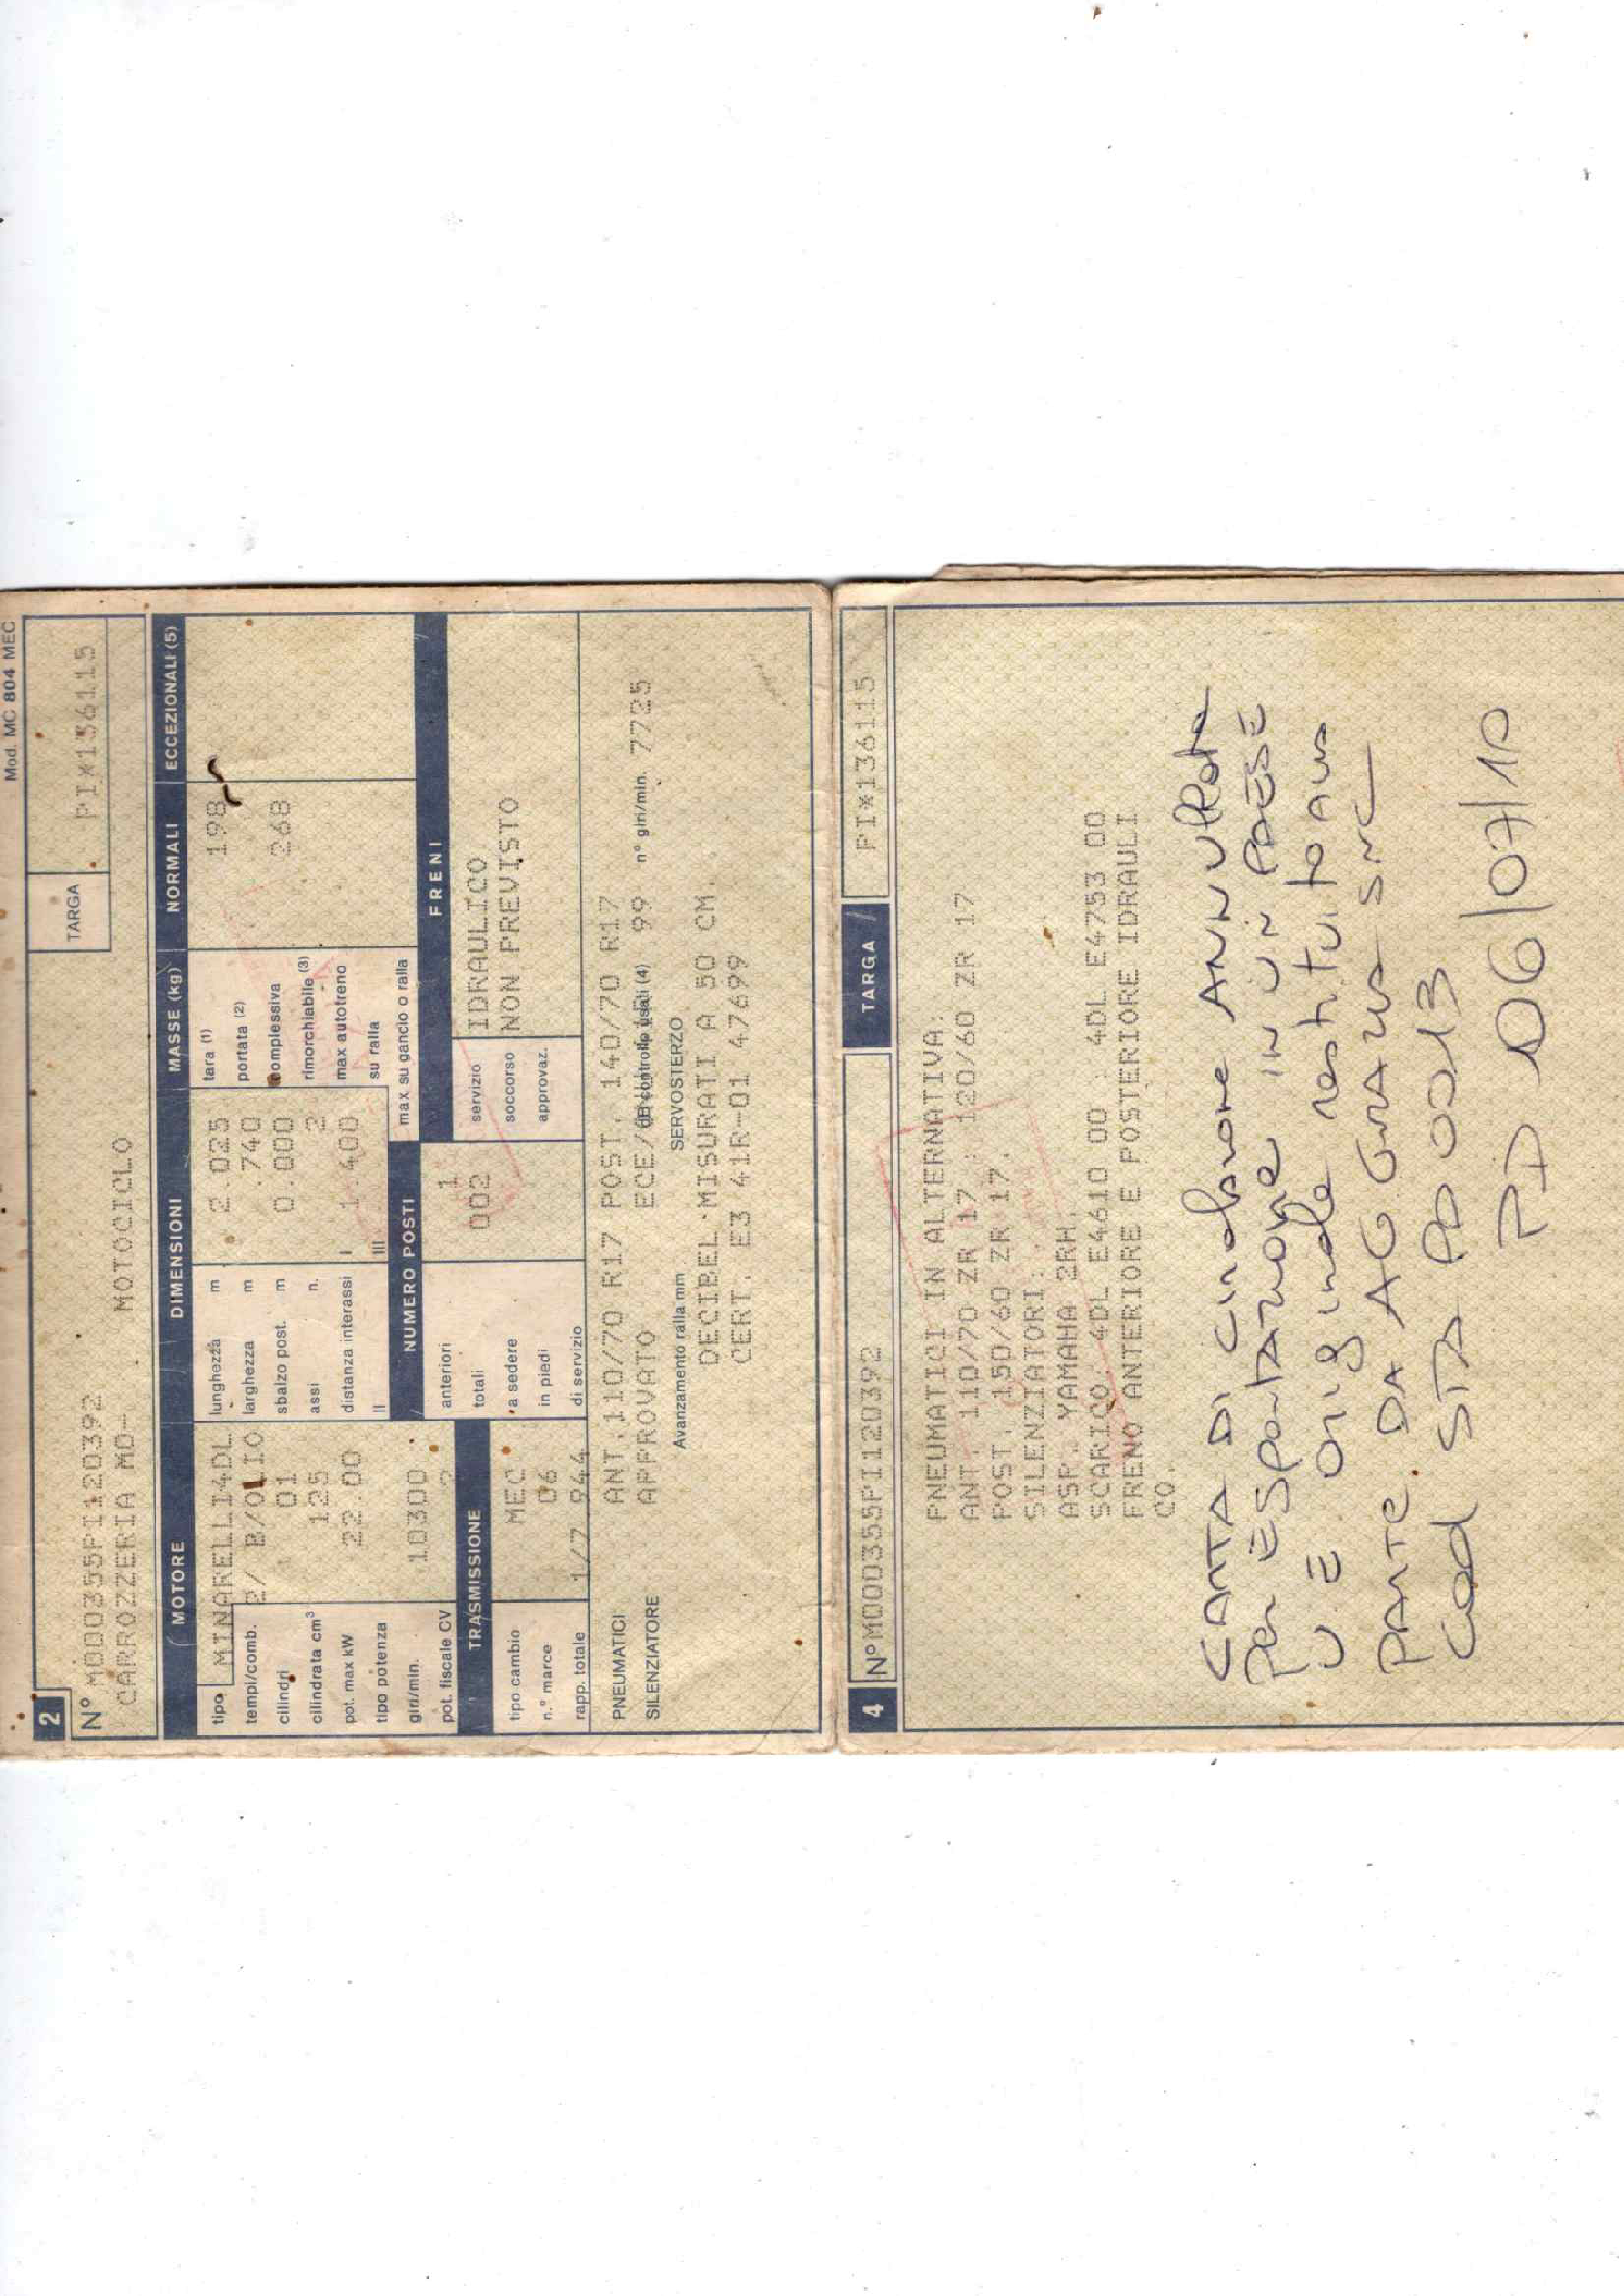 Mod. MC 804 MEC
2
N° M000355PI120392
TARGA
PI*136115
CARROZZERIA MO- MOTOCICLO
MOTORE
tipo MINARELLI4DL
tempi/comb. 2/ B/OLIO
cilindri 01
cilindrata cm³ 125
pot. max kW 22.00
tipo potenza
giri/min. 10300
pot. fiscale CV 2
DIMENSIONI
lunghezza m 2.025
larghezza m .740
sbalzo post. m 0.000
assi n. 2
distanza interassi I 1.400
II III
MASSE (kg) NORMALI ECCEZIONALI (5)
tara (1) 198
portata (2)
complessiva 268
rimorchiabile (3)
max autotreno
su ralla
max su gancio o ralla
NUMERO POSTI
anteriori 1
totali 002
a sedere
in piedi
di servizio
FRENI
servizio IDRAULICO
soccorso NON PREVISTO
approvaz.
TRASMISSIONE
tipo cambio MEC
n.° marce 06
rapp. totale 1/7.944
PNEUMATICI ANT.110/70 R17 POST. 140/70 R17
SILENZIATORE APPROVATO ECE/ 99 n° giri/min. 7725
Avanzamento ralla mm SERVOSTERZO
DECIBEL MISURATI A 50 CM.
CERT. E3 41R-01 47699
4
N° M000355PI120392
TARGA
PI*136115
PNEUMATICI IN ALTERNATIVA:
ANT. 110/70 ZR 17 . 120/60 ZR 17
POST. 150/60 ZR 17.
SILENZIATORI:
ASP. YAMAHA 2RH.
SCARICO: 4DL E4610 00 : 4DL E4753 00
FRENO ANTERIORE E POSTERIORE IDRAULI
CO.
CARTA DI circolazione ANNULLATA
Per ESPORTAZIONE IN UN PAESE
U.E. originale restituito alla
PARTE. DA AG GRAZIA SNC
Cod STA PD 0013
PD 06/07/10